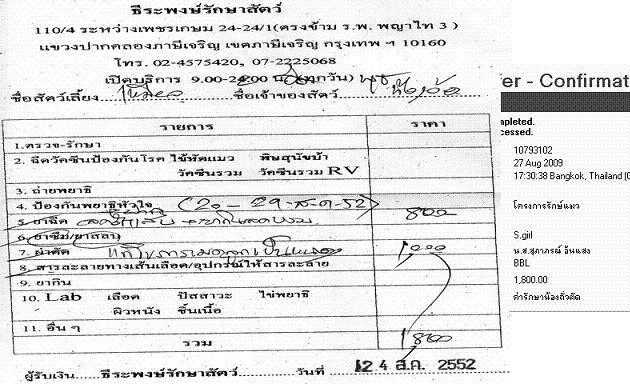 ธีระพงษ์รักษาสัตว์
110/4 ระหว่างเพชรเกษม 24-24/1(ตรงข้าม ร.พ. พญาไท 3 )
แขวงปากคลองภาษีเจริญ เขตภาษีเจริญ กรุงเทพ ฯ 10160
โทร. 02-4575420, 07-2225068
เปิดบริการ 9.00-24.00 น. (ทุกวัน)
ชื่อสัตว์เลี้ยง ชื่อเจ้าของสัตว์
รายการ ราคา
1.ตรวจ-รักษา
2. ฉีดวัคซีนป้องกันโรค ไข้หัดแมว พิษสุนัขบ้า
วัคซีนรวม วัคซีนรวม RV
3. ถ่ายพยาธิ
4. ป้องกันพยาธิหัวใจ (20-29-ส.ค-52)
5. ยาฉีด 800
6. ยาซึม/ยาสลบ
7. ผ่าตัด 1000
8. สารละลายทางเส้นเลือด/อุปกรณ์ให้สารละลาย
9. ยากิน
10. Lab เลือด ปัสสาวะ ไข่พยาธิ
ผิวหนัง ชิ้นเนื้อ
11. อื่น ๆ
รวม 1800
ผู้รับเงิน.....ธีระพงษ์รักษาสัตว์.....วันที่ 24 ส.ค. 2552
er - Confirmat
npleted.
cessed.
10793102
27 Aug 2009
17:30:38 Bangkok, Thailand (G
โครงการรักษ์แมว
S.gil
น.ส.สุภาภรณ์ อ้นแสง
BBL
1,800.00
ค่ารักษาน้องถั่วตัด